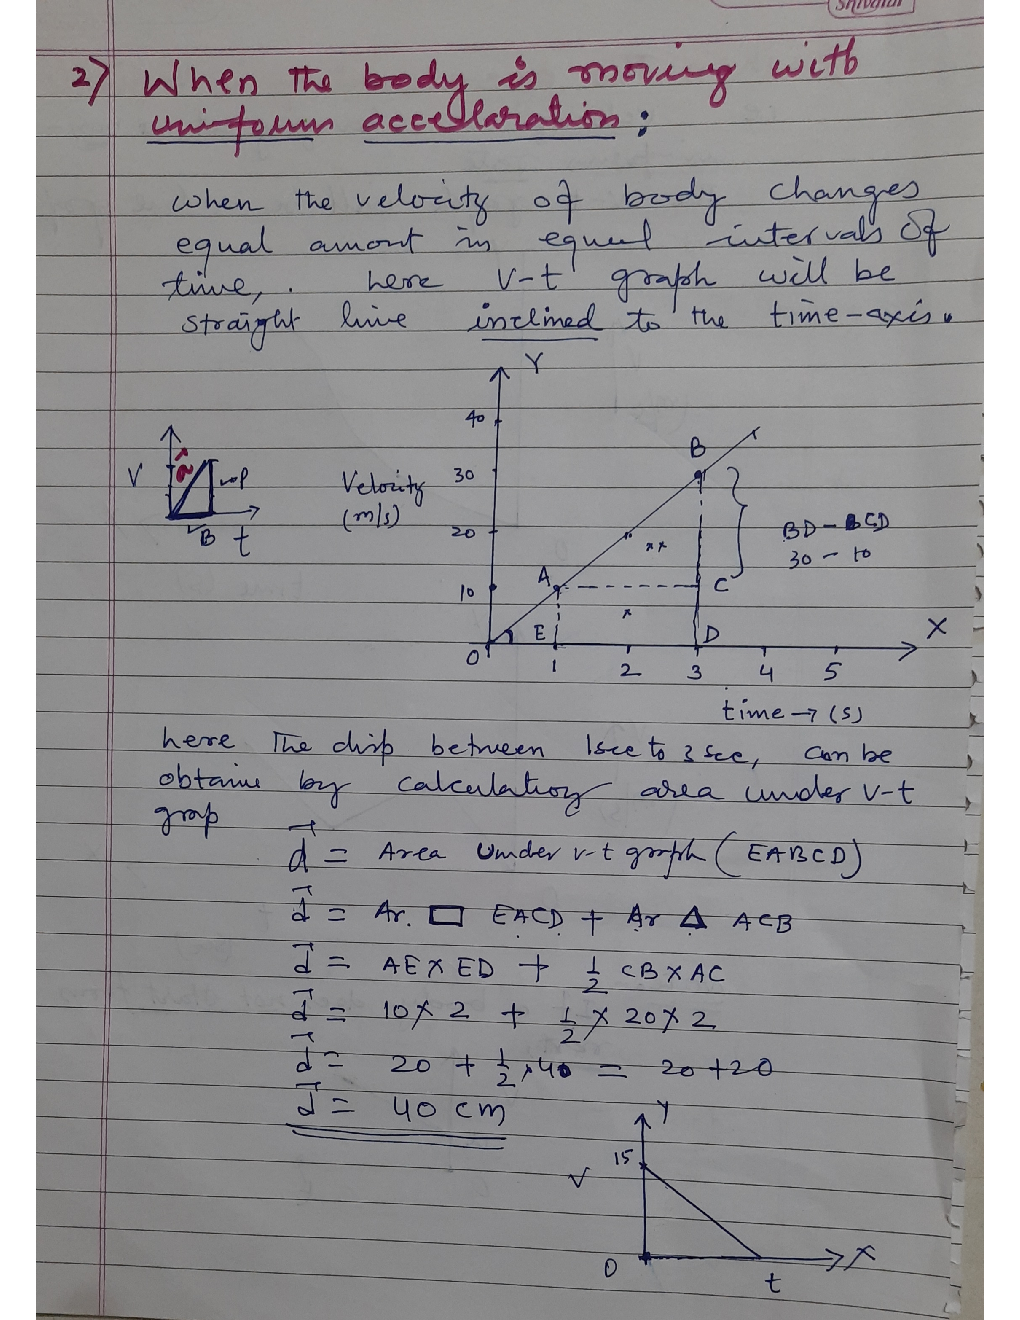 Shivalal
2) When the body is moving with
uniform accellaration :
when the velocity of body changes
equal amont in equal intervals of
time, . here v-t graph will be
straight line inclined to the time-axis.
Y
40
V
Velocity
(m/s)
30
B
P
BD - BCD
30 - 10
20
xx
B t
A
10
C
x
E
D
X
O
1 2 3 4 5
time → (s)
here The disp between 1sec to 3 sec, can be
obtaine by calculatioy area under v-t
grap
d = Area Under v-t graph (EABCD)
d = Ar. ▭ EACD + Ar Δ ACB
d = AE X ED + 1/2 CB X AC
d = 10 X 2 + 1/2 X 20 X 2
d = 20 + 1/2 x 40 = 20 + 20
d = 40 cm
Y
15
V
O
X
t